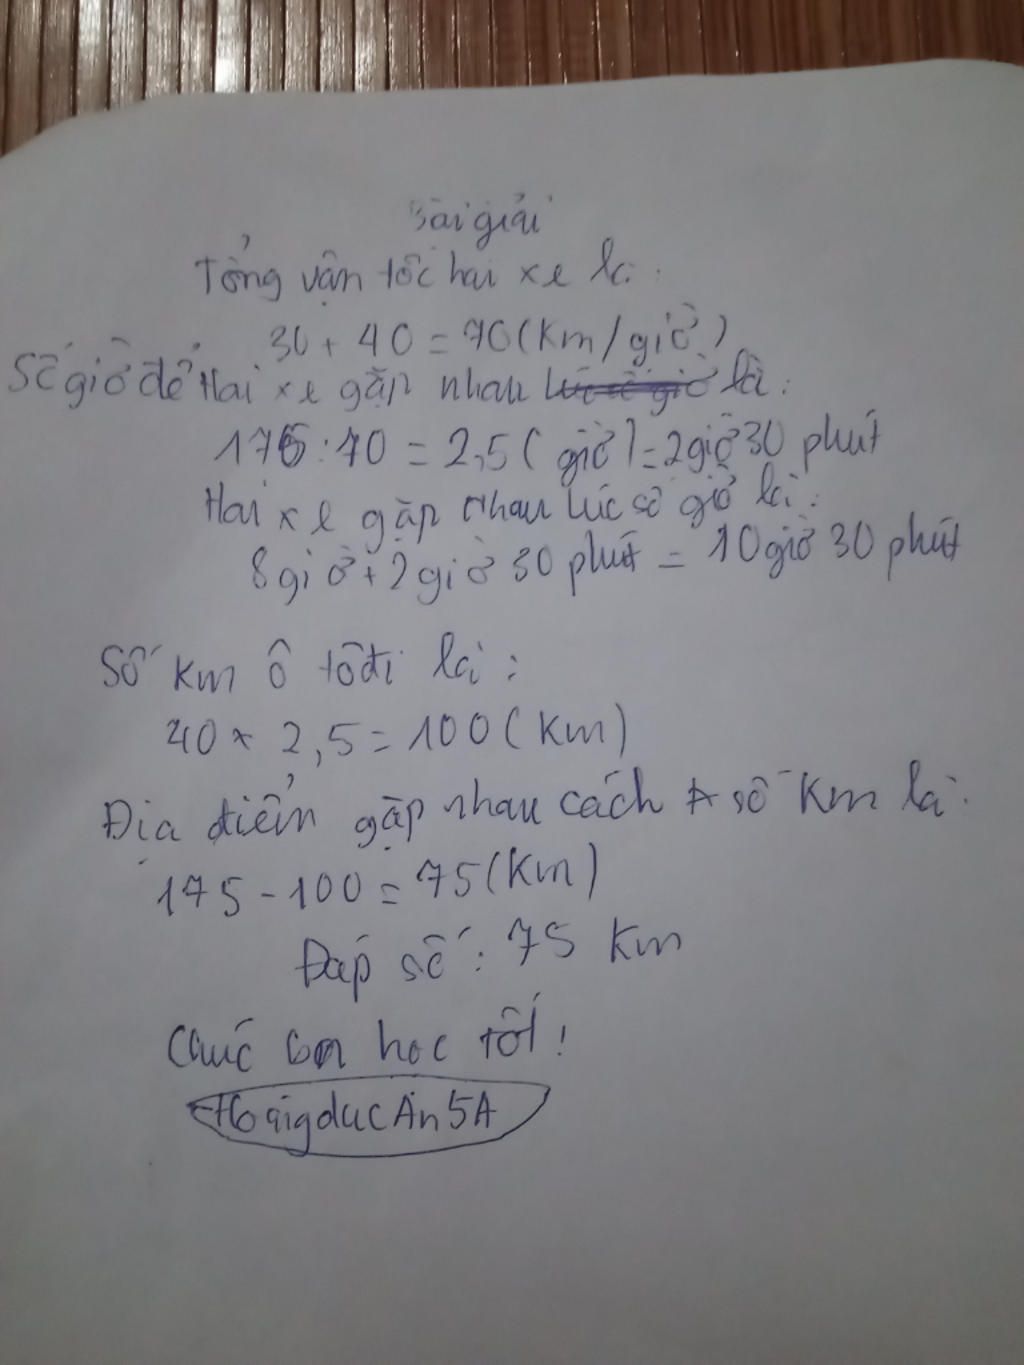 Bài giải
Tổng vận tốc hai xe là:
30 + 40 = 70 (Km/giờ)
Số giờ để Hai xe gặp nhau là:
175 : 70 = 2,5 (giờ) = 2giờ 30 phút
Hai xe gặp nhau lúc số giờ là:
8 giờ + 2 giờ 30 phút = 10 giờ 30 phút
Số km ô tô đi là:
40 x 2,5 = 100 (Km)
Địa điểm gặp nhau cách A số Km là:
175 - 100 = 75 (Km)
Đáp số: 75 Km
Chúc bạn học tốt!
HoàngđucAn5A